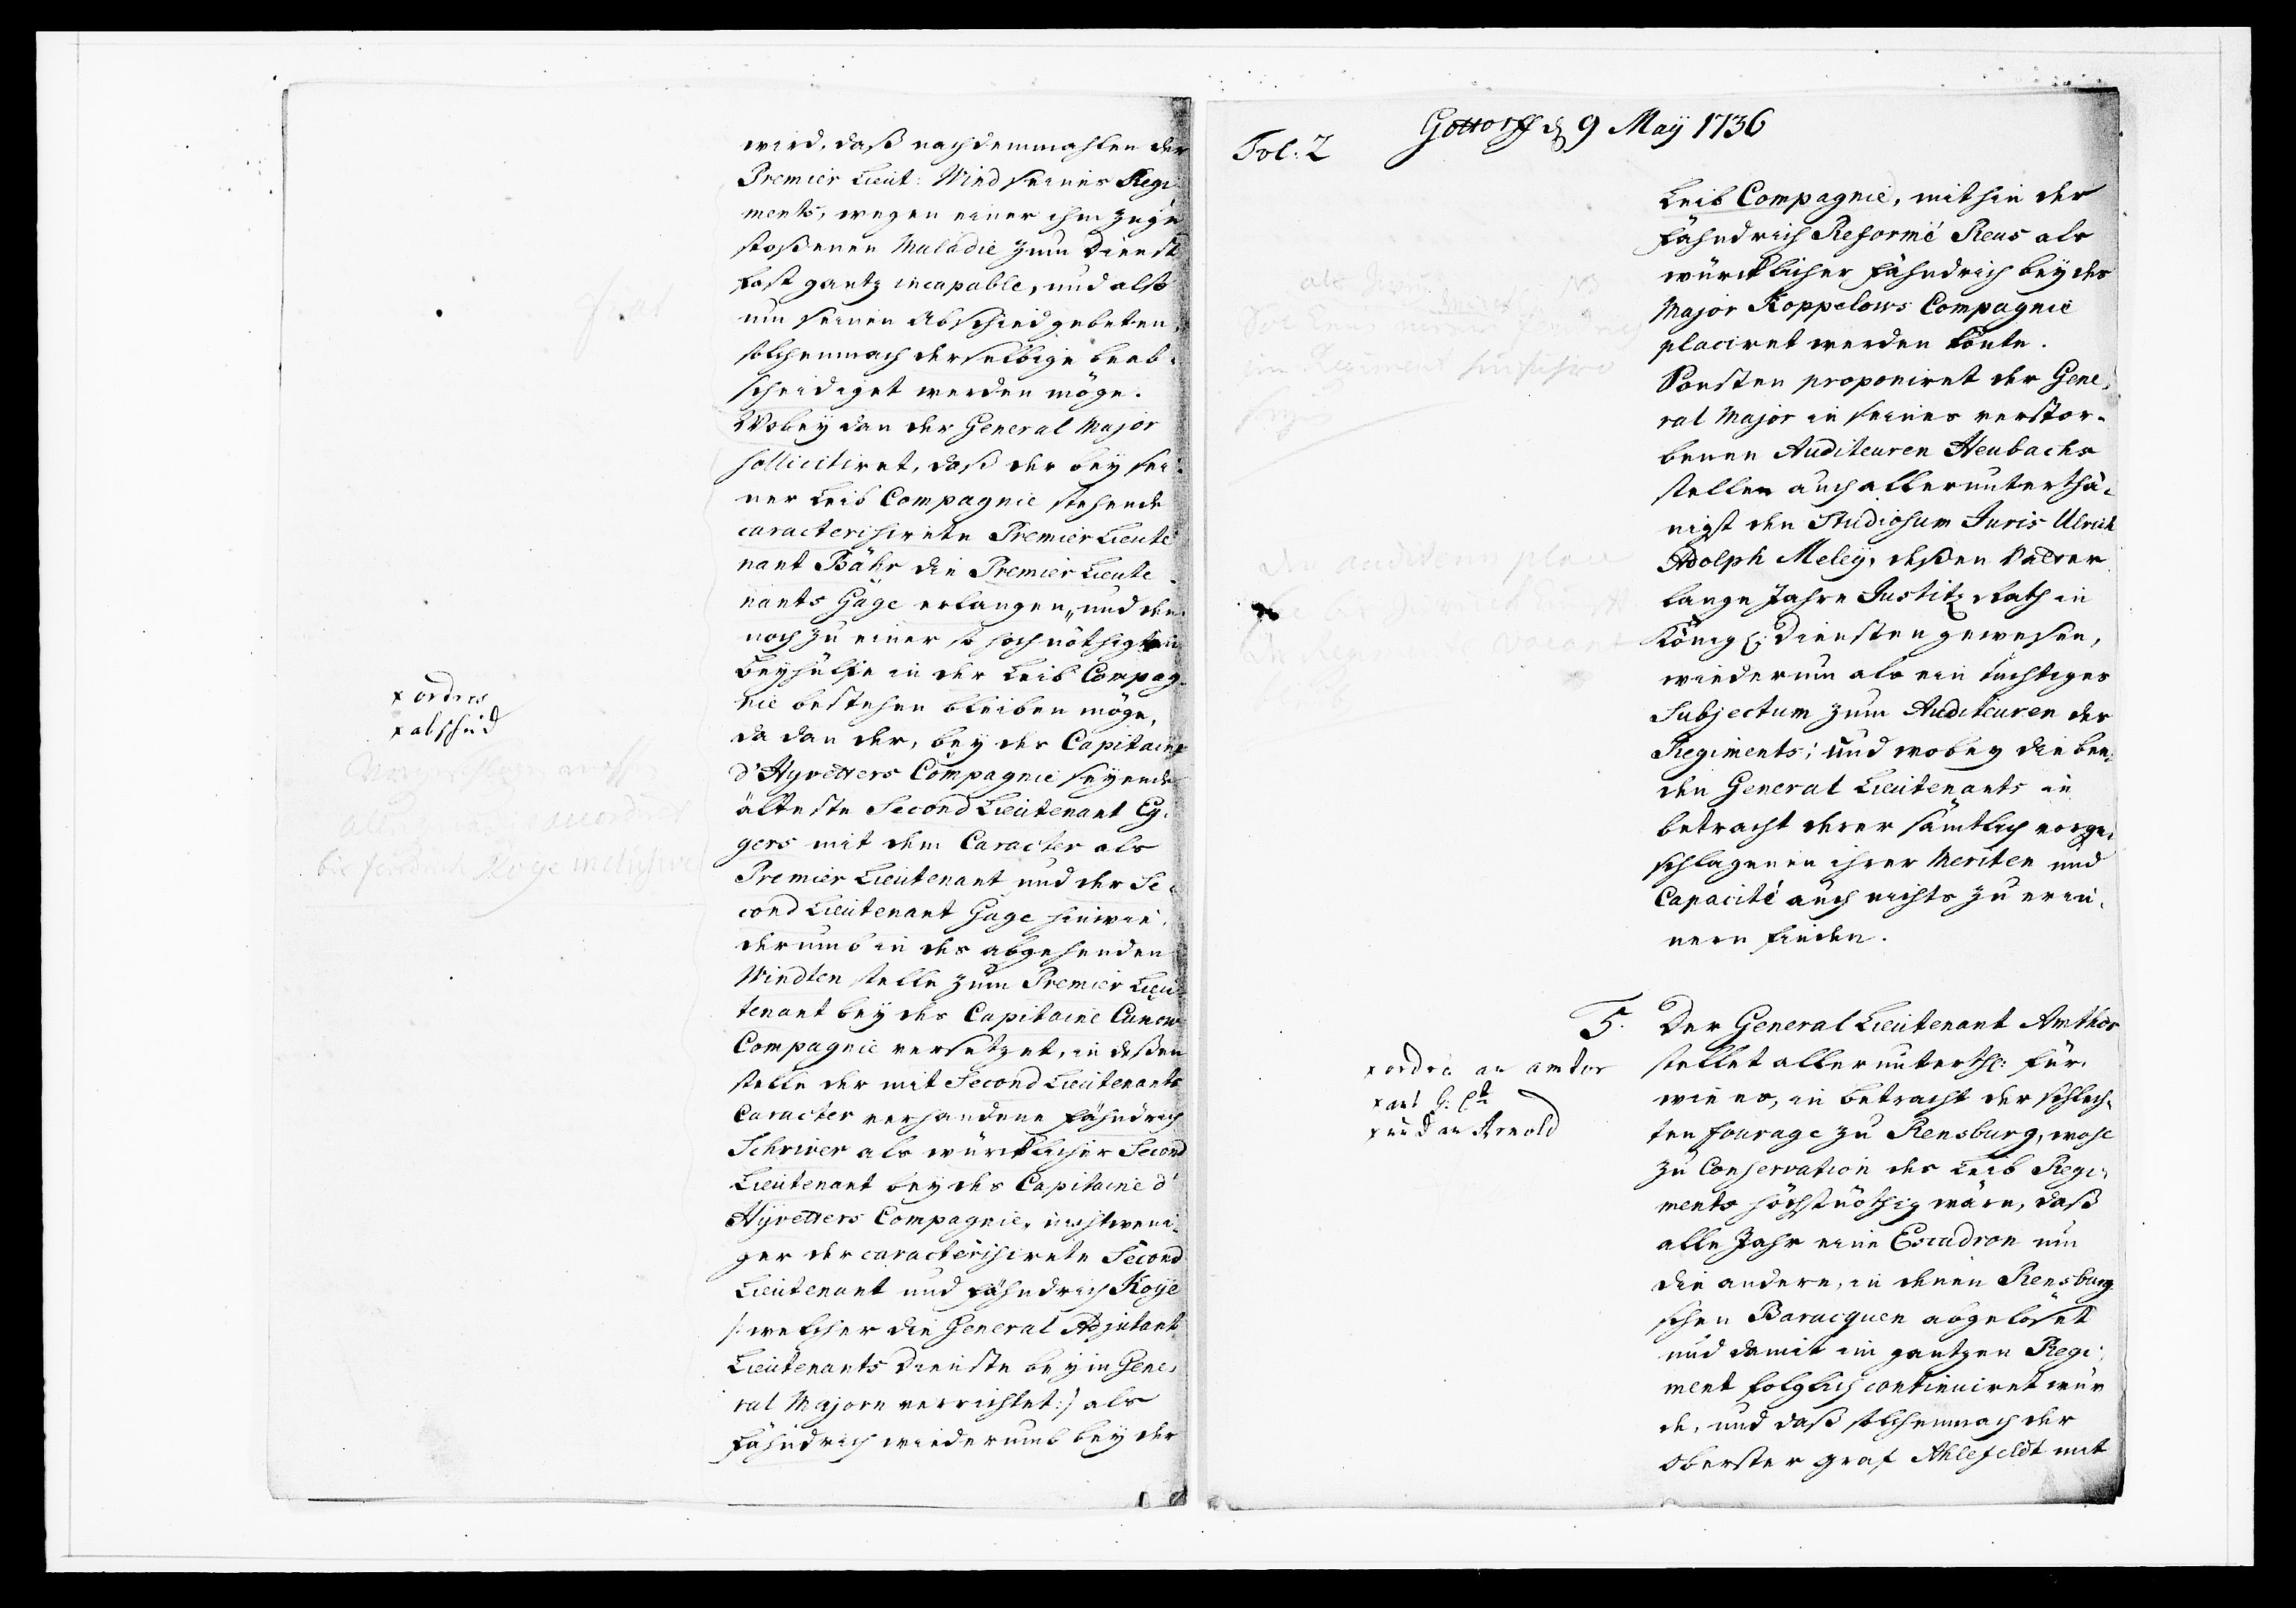 wird, daß nachdemmahlen der
Premier Lieut: Wind seines Regi-
ments, wegen einer ihm zuge-
stoßenen Maladie zum Dienst
fast gantz incapable, und also
um seinen Abschied gebeten,
solchemnach derselbige beab-
scheidiget werden möge.
Wobey dan der General Major
sollicitiret, daß der bey sei-
ner Leib Compagnie stehende
caracterisirete Premier Lieute-
nant Bähr die Premier Lieute-
nants Gage erlangen, und den-
noch zu einer so hochnöthigten
Beyhülffe in der Leib Compag-
nie bestehen bleiben möge,
da dan der, bey des Capitaine
d'Hyretters Compagnie seyende
älteste Second Lieutenant Eg-
gers mit dem Caracter als
Premier Lieutenant und der Se-
cond Lieutenant Gage hinwie-
derumb in des abgehenden
Windten stelle zum Premier Lieu-
tenant bey des Capitaine Canow
Compagnie versetzet, in deßen
stelle der mit Second Lieutenants
Caracter verhandene Fähndrich
Schriver als würcklicher Second
Lieutenant bey des Capitaine d'
Hyretters Compagnie, nichtweni-
ger der caracterisirete Second
Lieutenant und Fähndrich Koye
/: welcher die General Adjutant
Lieutenants Dienste beym Gene-
ral Majorn verrichtet :/ als
Fähndrich wiederumb bey der
x ordres
x abscheid
bis fendrich Koye inclusive
Gottorff d 9 May 1736
Fol: 2
Leib Compagnie, mithin der
Fähndrich Reformé Reus als
würcklicher Fähndrich bey des
Major Koppelows Compagnie
placiret werden könte.
Sonsten proponiret der Gene-
ral Major in seines verstor-
benen Auditeuren Heubachs
stelle auch allerunterthä-
nigst den Studiosum Juris Ulrich
Adolph Meley, deßen Vatter
lange Jahre Justitz Rath in
Königl: Diensten gewesen,
wiederum als ein tüchtiges
Subjectum zum Auditeuren des
Regiments; und wobey die bey-
den General Lieutenants in
betracht derer sämtlich vorge-
schlagenen ihrer Meriten und
Capacité auch nichts zu erin-
nern finden.
5. Der General Lieutenant Amthor
stellet allerunterth: für,
wie es, in betracht der schlech-
ten fourage zu Rensburg, wohl
zu Conservation des Leib Regi-
ments höchstnöthig wäre, daß
alle Jahr eine Escadron um
die andere, in denen Rensburg-
schen Baracquen abgelöset
und damit im gantzen Regi-
ment folglich continuiret wür-
de, und daß solchemnach der
Oberster Graf Ahlefeldt mit
x ordre an amtor
x und an Arnold